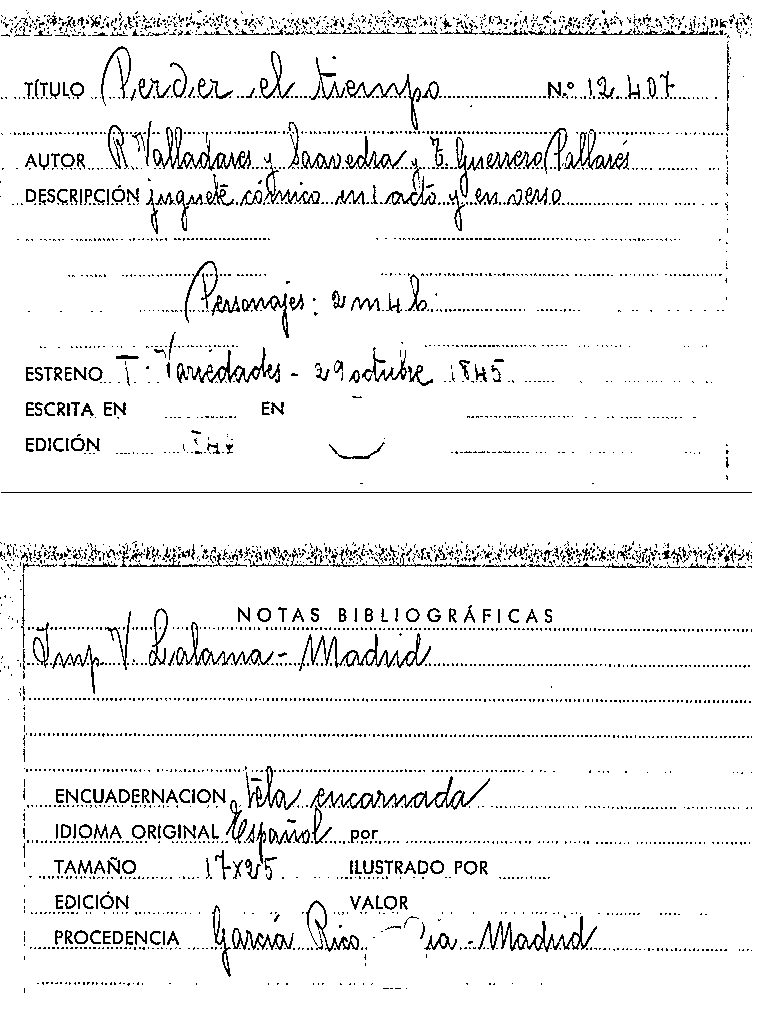 TÍTULO Perder el tiempo N.º 12.407
AUTOR R. Valladares y Saavedra y T. Guerrero Pallarés
DESCRIPCIÓN juguete cómico en 1 acto y en verso
Personajes: 2 m 4 h.
ESTRENO T. Variedades - 29 octubre 1845
ESCRITA EN EN
EDICIÓN
NOTAS BIBLIOGRÁFICAS
Imp V. Lalama - Madrid
ENCUADERNACION tela encarnada
IDIOMA ORIGINAL Español por
TAMAÑO 17x25 ILUSTRADO POR
EDICIÓN VALOR
PROCEDENCIA García Rico - Madrid